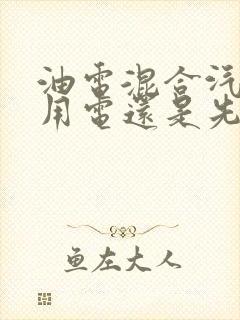 油電混合汽
用電還是先
鱼左大人